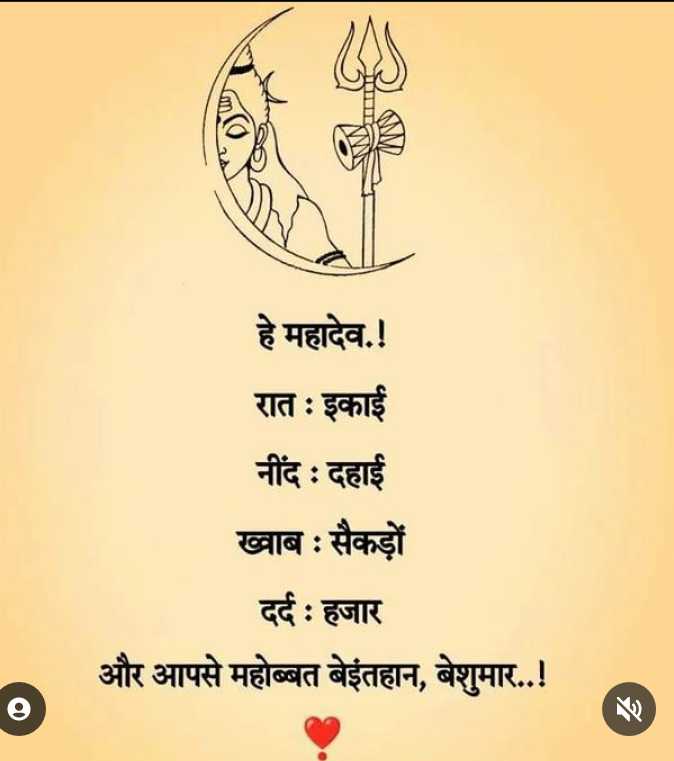 हे महादेव.!
रात : इकाई
नींद : दहाई
ख्वाब : सैकड़ों
दर्द : हजार
और आपसे महोब्बत बेइंतहान, बेशुमार..!